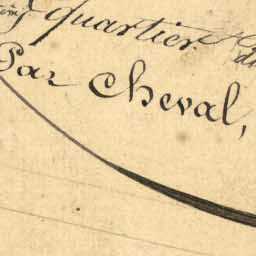 quartier
Par Cheval,